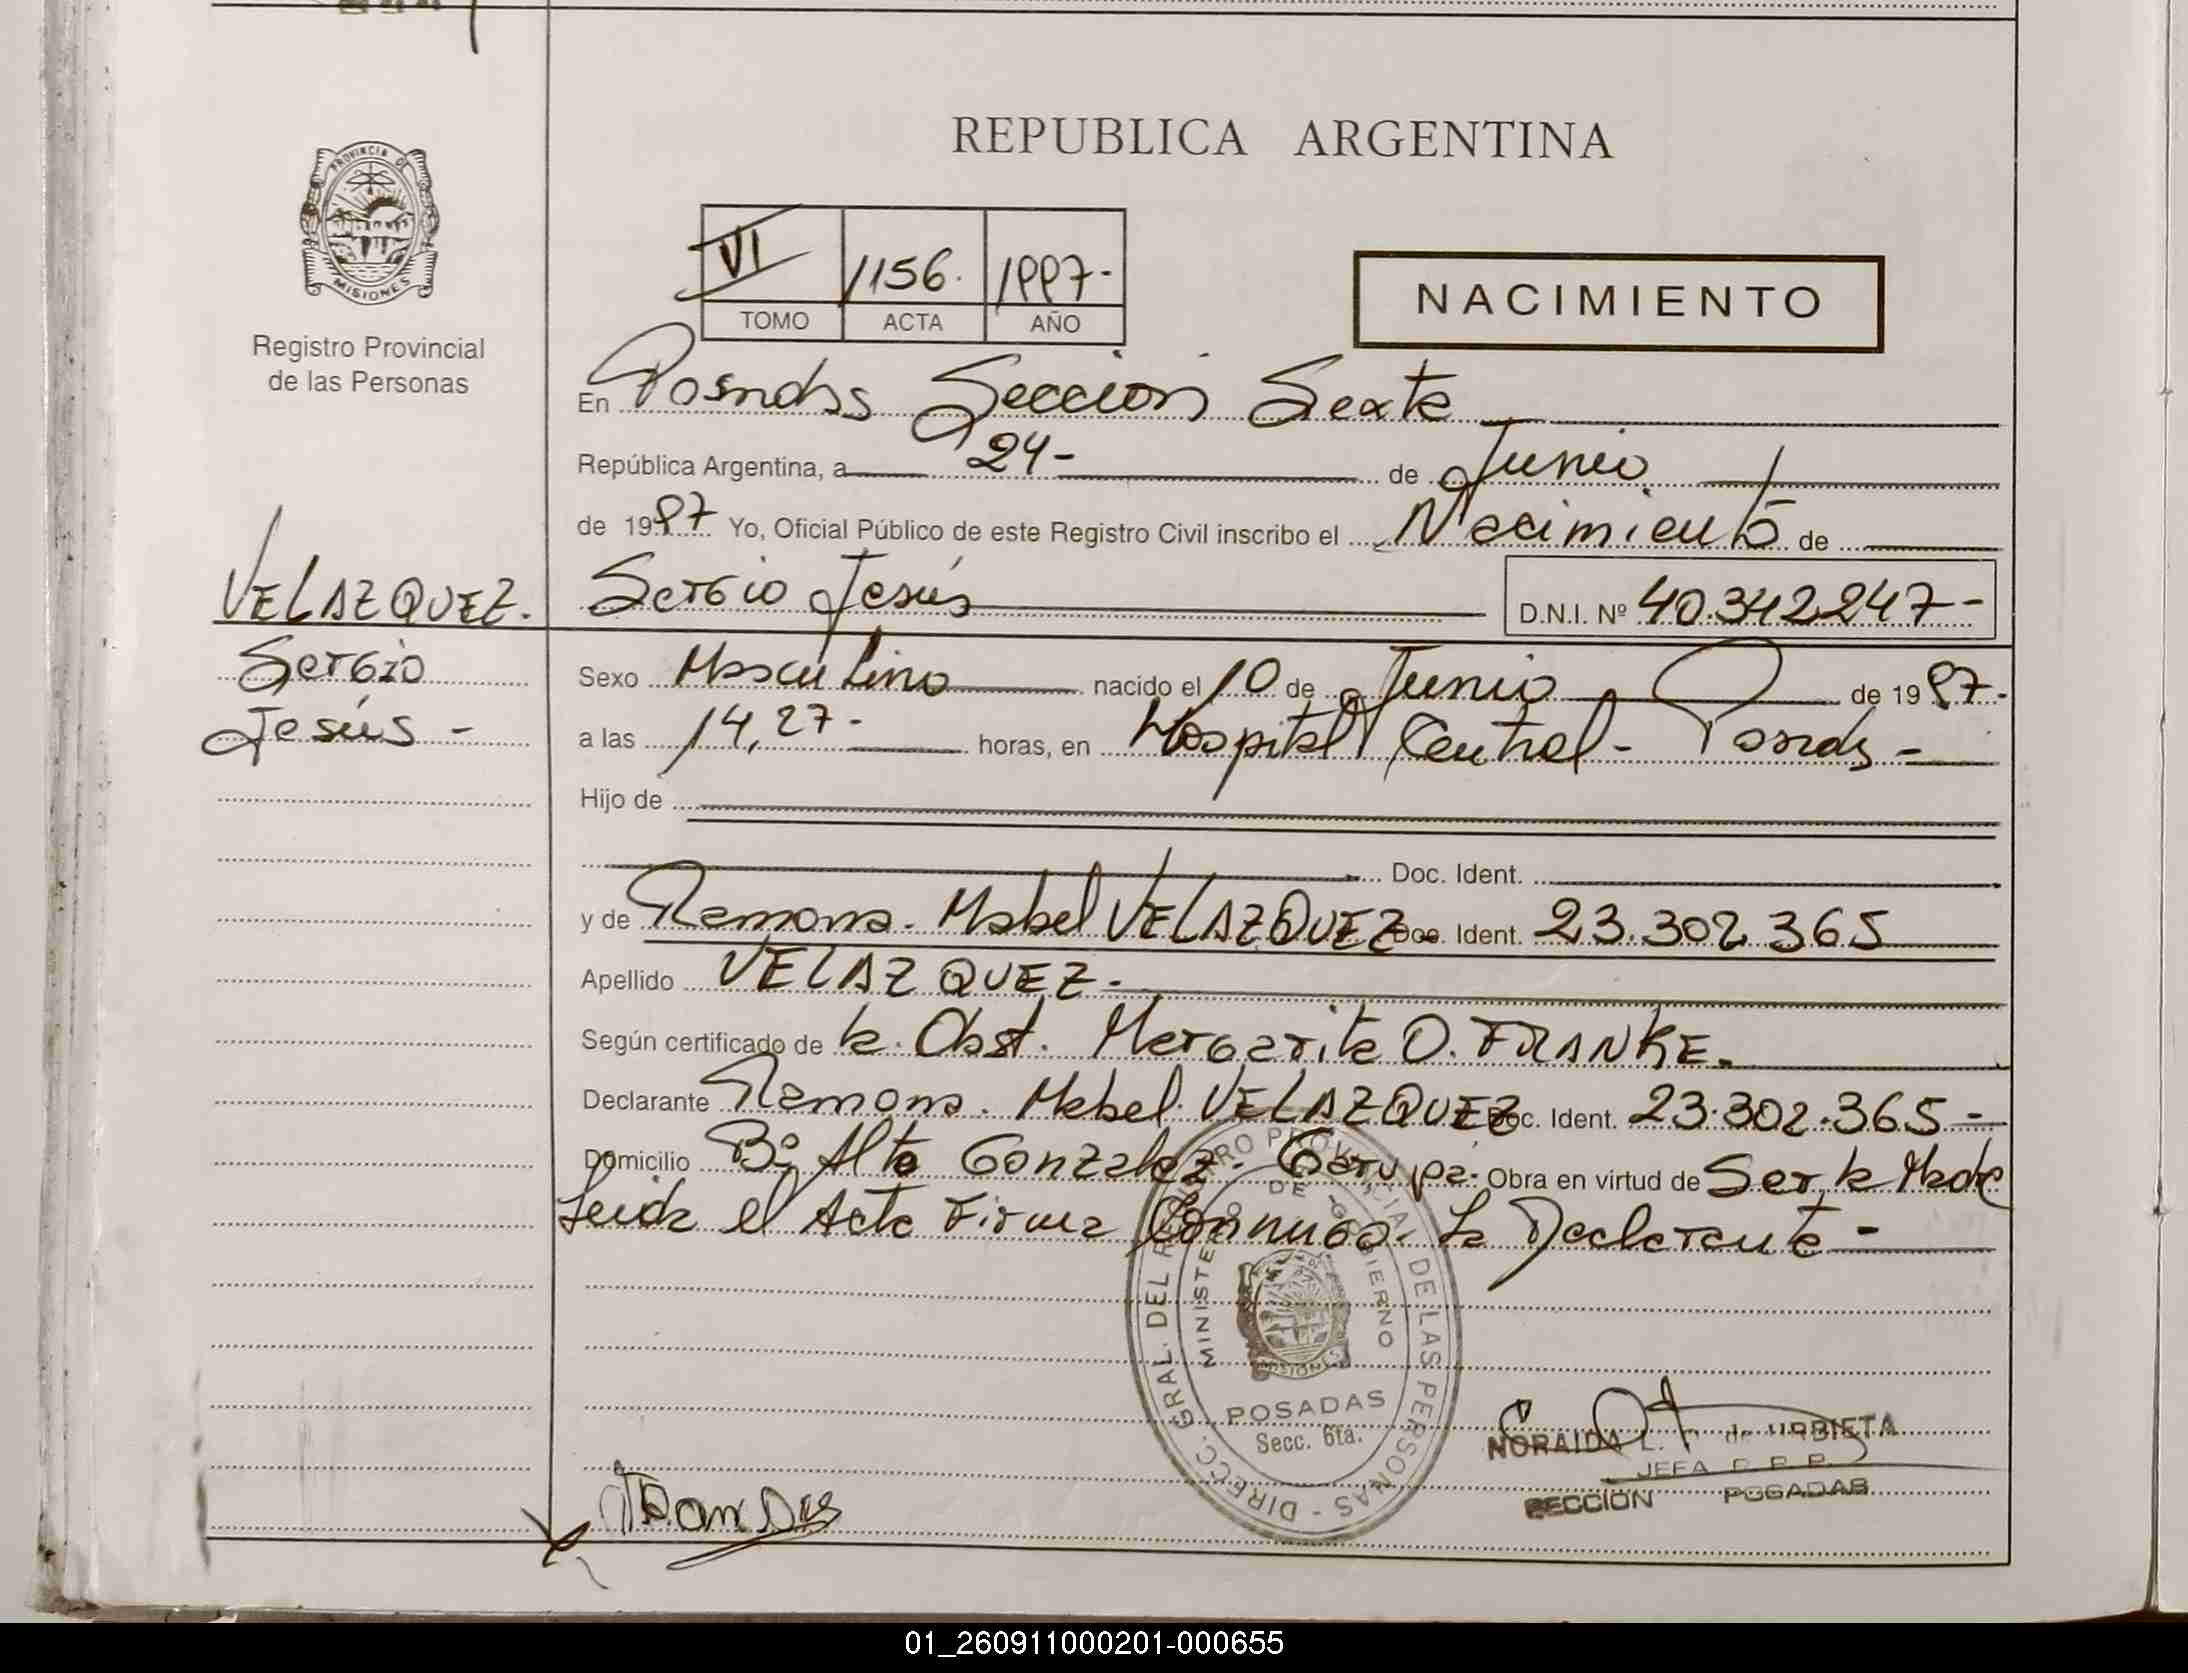 REPUBLICA ARGENTINA
PROVINCIA DE
MISIONES
Registro Provincial
de las Personas
VI 1156. 1997-
TOMO ACTA AÑO
NACIMIENTO
En Posadas Sección Sexta
República Argentina, a 24- de Junio
de 1997 Yo, Oficial Público de este Registro Civil inscribo el Nacimiento de
VELAZQUEZ. Sergio Jesús D.N.I. Nº 40.342.247-
Sergio Sexo Masculino nacido el 10 de Junio de 1997-
Jesús - a las 14,27- horas, en Hospital Central - Posadas -
Hijo de
Doc. Ident.
y de Ramona Mabel VELAZQUEZ- Doc. Ident. 23.302.365
Apellido VELAZQUEZ-
Según certificado de la Obst. Margarita O. FRANKE.
Declarante Ramona Mabel VELAZQUEZ Doc. Ident. 23.302.365-
Domicilio Bº Alta Gonzalez- Garupá- Obra en virtud de Ser la Madre
Leida el Acta Firma Conmigo La Declarante -
DIRECC. GRAL. DEL REGISTRO PROVINCIAL DE LAS PERSONAS -
MINISTERIO DE GOBIERNO
MISIONES
POSADAS
Secc. 6ta.
NORAIDA L. de URBIETA
JEFA
SECCION POSADAS
01_260911000201-000655